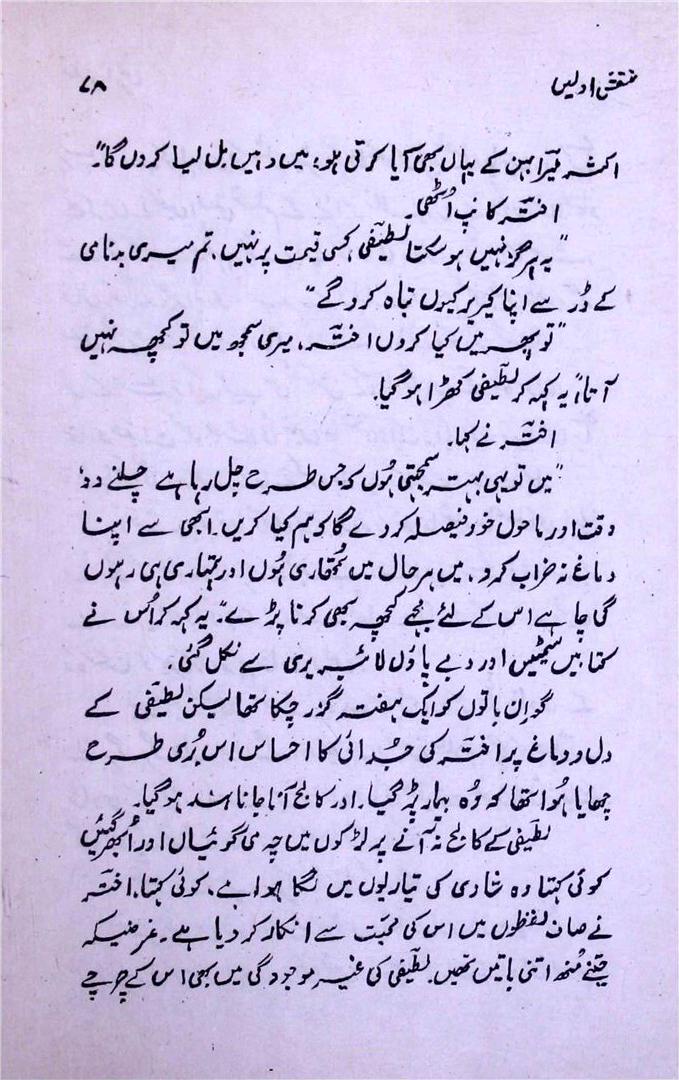 نقشِ اولیں
۷۸
اکثر میرا بہن کے یہاں بھی آیا کرتی ہو؛ میں وہیں مل لیا کروں گا"۔
اختر کانپ اُٹھی۔
"یہ ہرگز نہیں ہو سکتا لطیفی کسی قیمت پر نہیں، تم میری بدنامی
کے ڈر سے اپنا کیریر کیوں تباہ کرو گے"
"تو پھر میں کیا کروں اختر، میری سمجھ میں تو کچھ نہیں
آتا" یہ کہہ کر لطیفی کھڑا ہو گیا۔
اختر نے کہا۔
"میں تو یہی بہتر سمجھتی ہُوں کہ جس طرح چل رہا ہے چلنے دو؛
وقت اور ماحول خود فیصلہ کر دے گا کہ ہم کیا کریں۔ ابھی سے اپنا
دماغ نہ خراب کرو، میں ہر حال میں تمُھاری ہُوں اور تمہاری ہی رہوں
گی چاہے اس کے لئے مجھے کچھ بھی کرنا پڑے"۔ یہ کہہ کر اُس نے
کتابیں سمیٹیں اور دبے پاؤں لائبریری سے نکل گئی۔
گو اِن باتوں کو ایک ہفتہ گزر چکا تھا لیکن لطیفی کے
دل و دماغ پر اختر کی جُدائی کا احساس اس بُری طرح
چھایا ہُوا تھا کہ وُہ بیمار پڑ گیا۔ اور کالج آنا جانا بند ہو گیا۔
لطیفی کے کالج نہ آنے پر لڑکوں میں چہ می گوئیاں اور اُبھر گئیں
کوئی کہتا وہ شادی کی تیاریوں میں لگا ہوا ہے، کوئی کہتا، اختر
نے صاف لفظوں میں اس کی محبّت سے انکار کر دیا ہے۔ غرضیکہ
جتنے مُنھ اتنی باتیں تھیں۔ لطیفی کی غیر موجودگی میں بھی اس کے چرچے